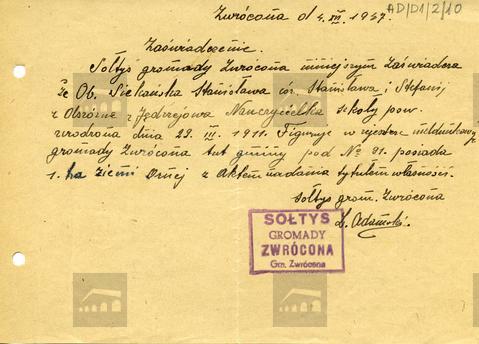 Zwrócona d 4. XII. 1947.
AD/D1/2/10
Zaświadczenie.
Sołtys gromady Zwrócona niniejszym zaświadcza
że Ob. Siekańska Stanisława cór. Stanisława i Stefanji
z Jędrzejowa Nauczycielka szkoły pow.
urodzona dnia 29. III. 1911. Figuruje w rejestr. meldunkowym
gromady Zwrócona tut. gminy pod № 91. posiada
1. ha ziemi Ornej z Aktem nadania tytułem własności.
Sołtys grom. Zwrócona
Adamski.
SOŁTYS
GROMADY
ZWRÓCONA
Gm. Zwrócona